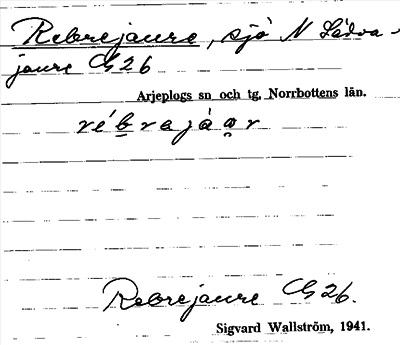 Rebrejaure, sjö N Sädva-
jaure G 26
Arjeplogs sn och tg, Norrbottens län.
rébrajȧo̤r
Rebrejaure G 26.
Sigvard Wallström, 1941.